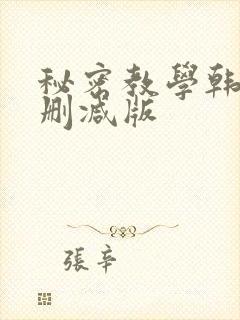 秘密教學韩
删减版
張辛